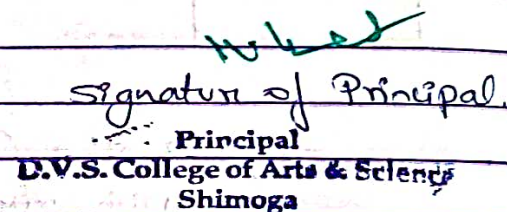 Signatur of Principal.
Principal
D.V.S. College of Arts & Science
Shimoga